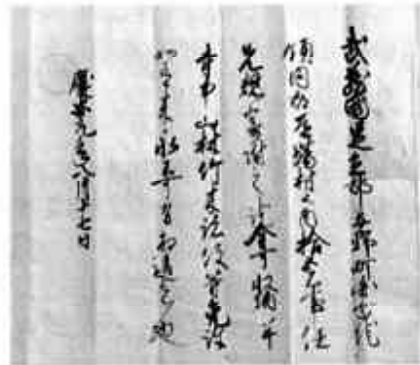 武蔵國足立郡
領同所村之内拾五石任
先規寄附之訖全可収納并
寺中山林竹木諸役等免除
如有来永不可有相違者也
慶安元年八月十七日